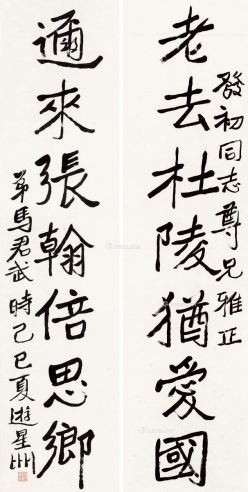 發初同志尊兄雅正
老去杜陵猶愛國
邇來張翰倍思鄉
弟馬君武時己巳夏遊星洲